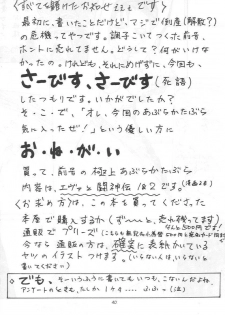 〈すべてを賭けたお知らせ です〉
最初に、書いたことだけど、マジで倒産(解散?)
の危機ってやつです。調子こいてつくった前号、
ホントに売れてません。どうして？何がいけな
かったの。けれども、それにめげずに、今回も、
さーびす、さーびす(死語)
したつもりです。いかがでしたか？
そ・こ・で、「オレ、今回のあぶらかたぶら
気に入ったぜ！」という優しい方に
お・ね・が・い
買って、前号の極上あぶらかたぶら
内容は、エヴァと闘神伝1&2です。(漫画28)
〈お求め方〉は、この本を買ってくださった
本屋で購入するか(ずーーっと、売れ残ってます)
なんと500円です!
通販でプリーズ
今なら通販の方は、確実に表動かしている
ヤツのイラストつけます。(いらない人は、いらないと
書いてください)
○でも、そーいうふうに書いても、いつも、こないんだよね。
アンケートのときも、たしか1ケ ・・・・ ふふっ(泣)
40